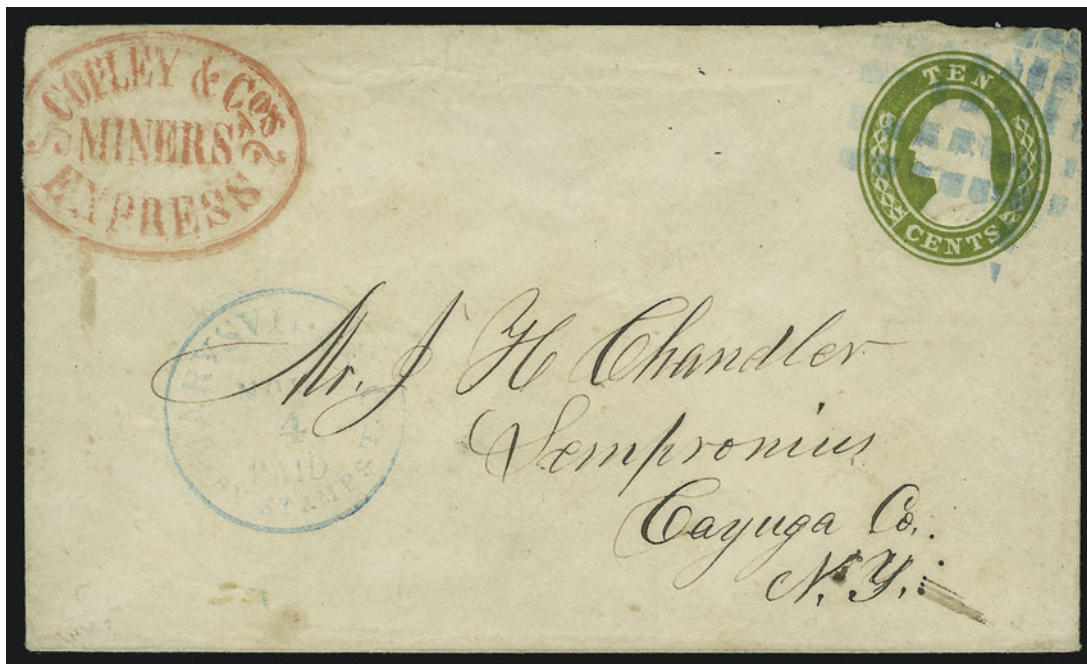 COPLEY & Cos
MINERS
EXPRESS
TEN
CENTS
MARYSVIL
4
PAID
BY STAMPS
Mr. J H Chandler
Sempronius
Cayuga Co.
N. Y.